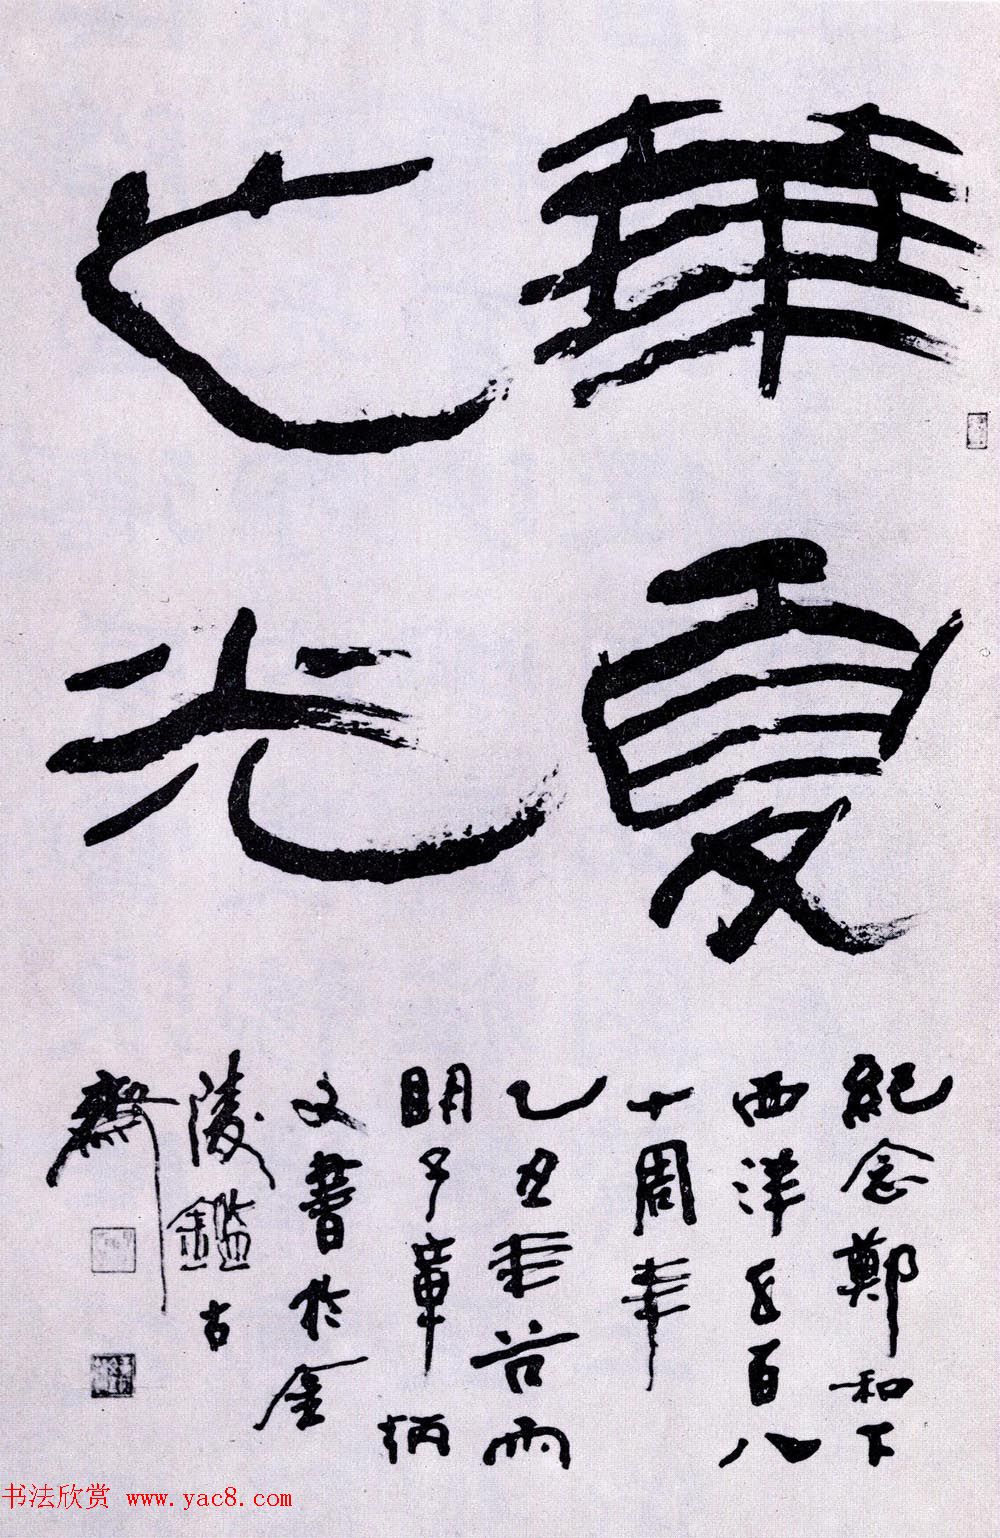 華夏
之光
紀念鄭和下
西洋五百八
十周年
乙丑年谷雨
明 章炳
文書於金
陵鑑古
齋
书法欣赏 www.yac8.com